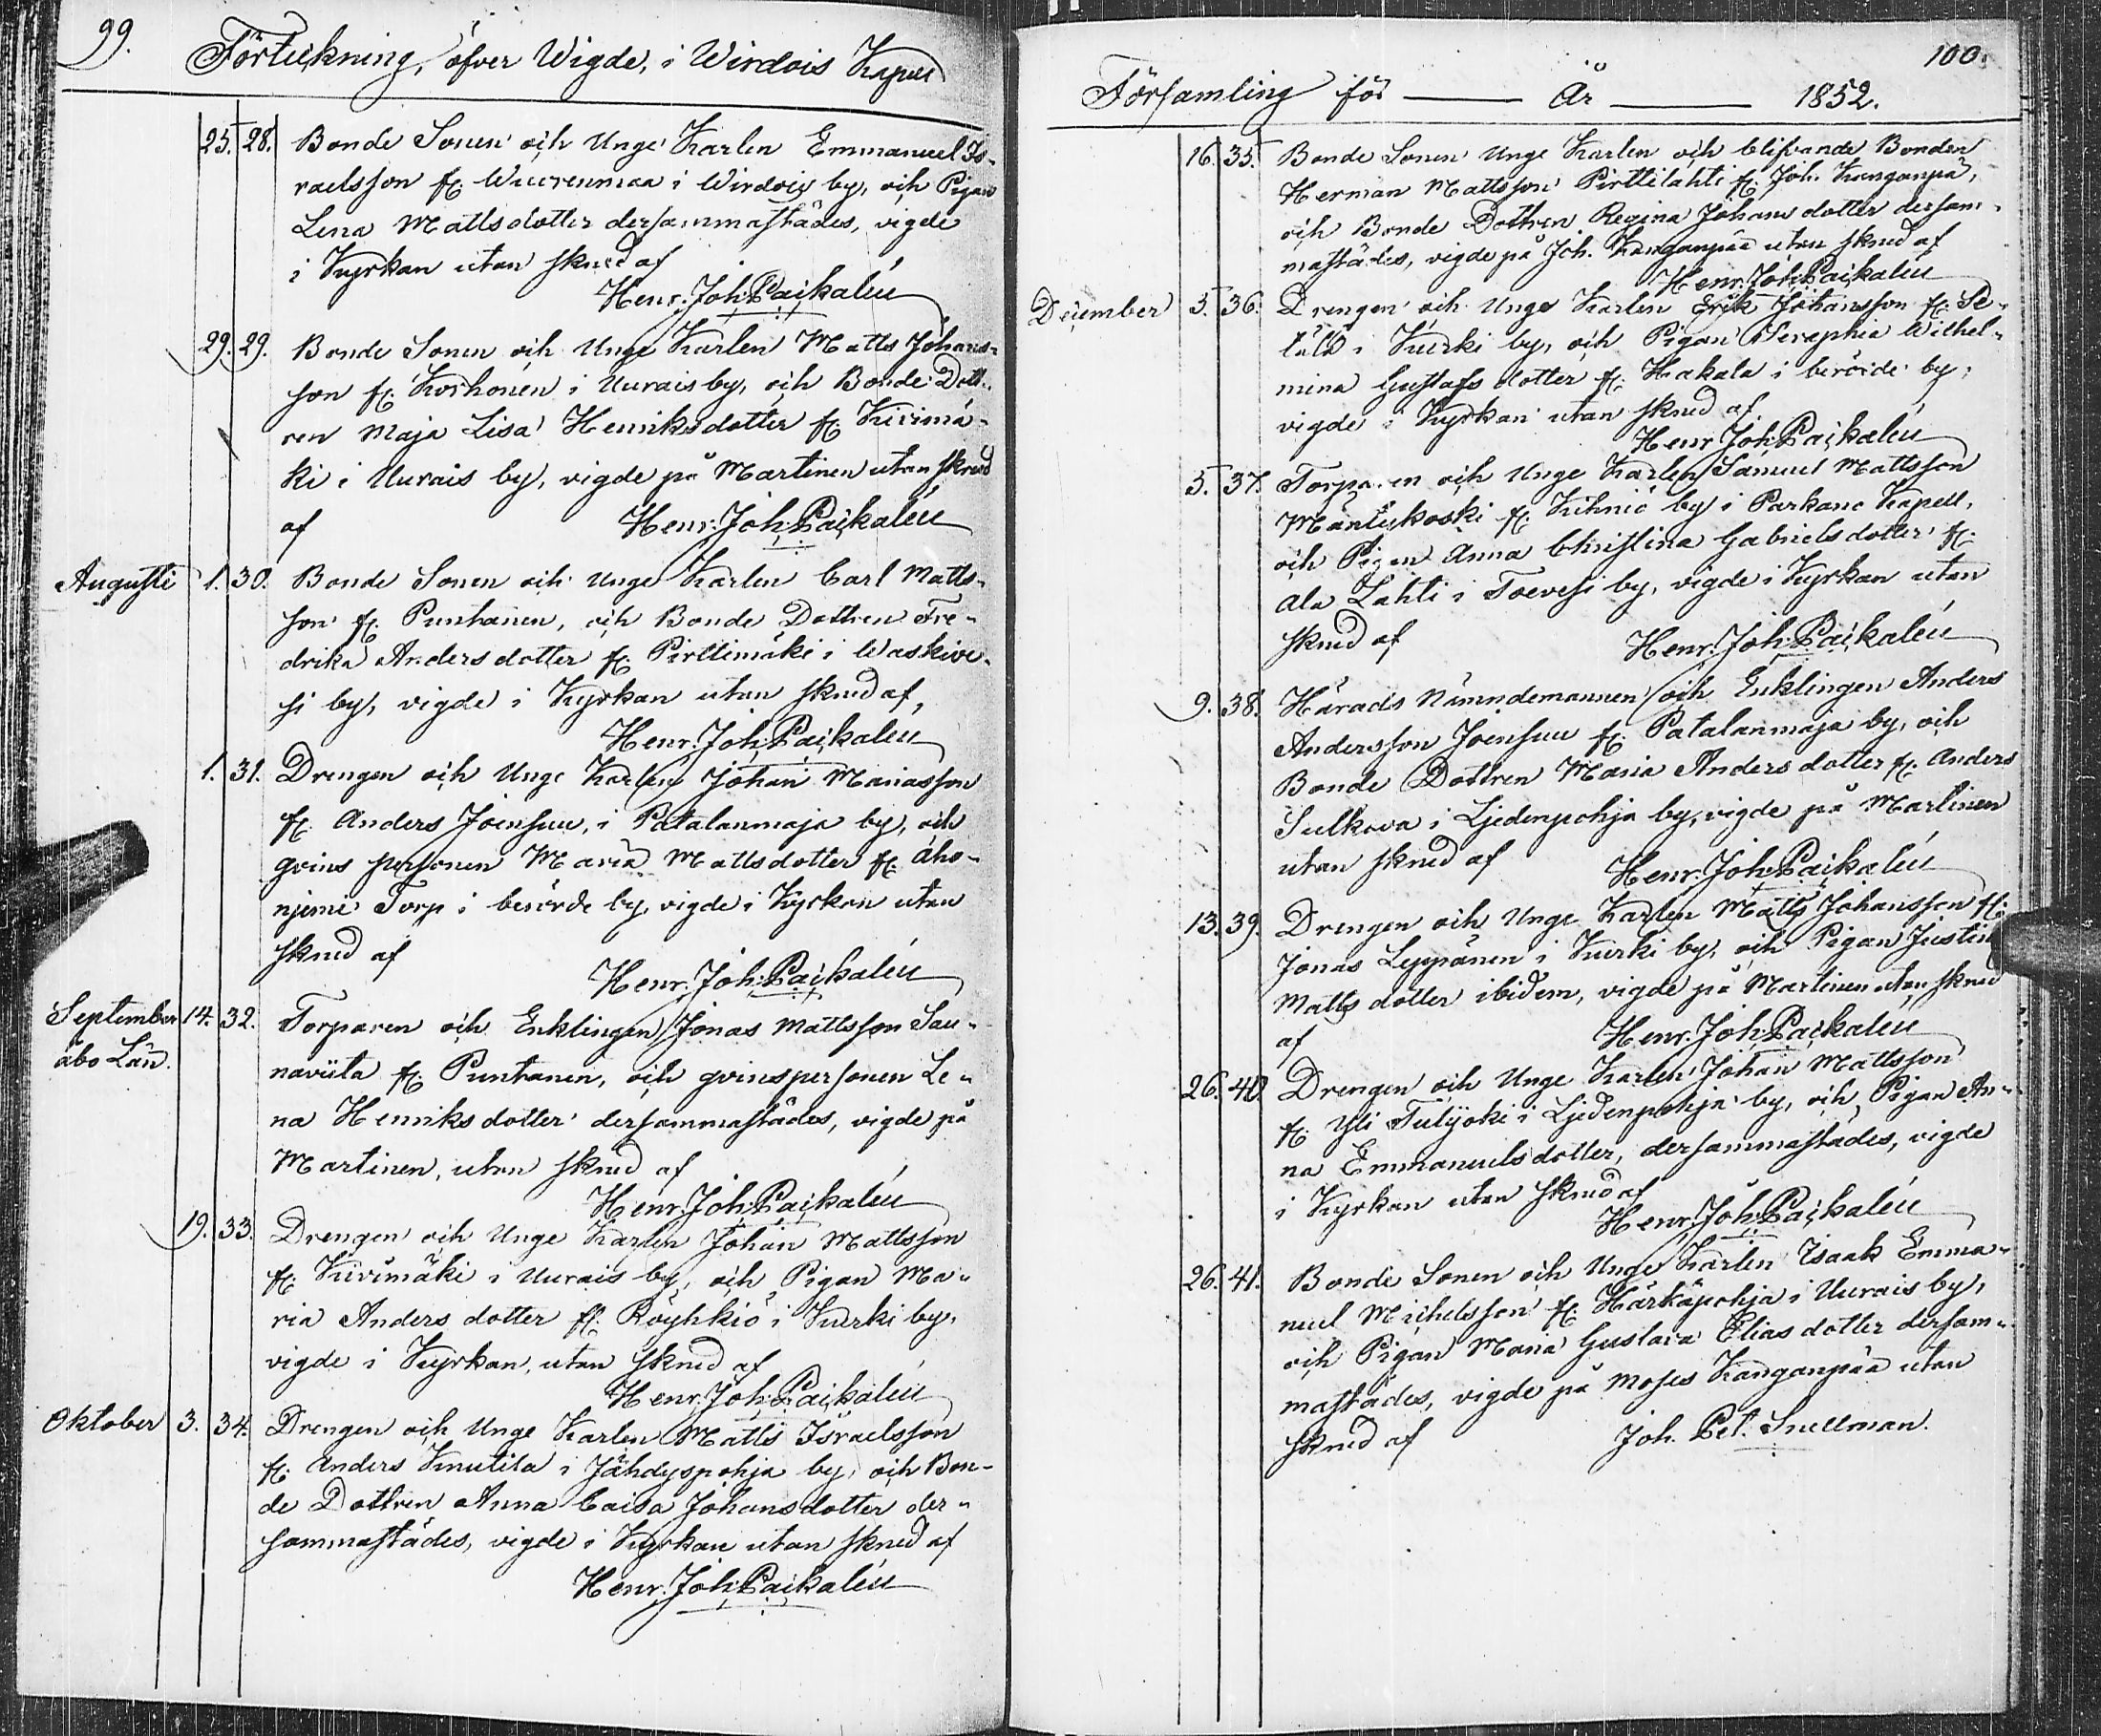 99.
Förteckning, öfver Wigde, i Wirdois Kapell
25. 28. Bonde Sonen och Unge Karlen Emmanuel Is-
raelsson fr. Wuorenmaa i Wirdois by, och Pigan
Lena Mattsdotter dersammastädes, vigde
i Kyrkan utan skrud af
Henr. Joh. Packalén
29. 29. Bonde Sonen och Unge Karlen Matts Johans-
son fr. Korhonen i Uurais by, och Bonde Dott-
ren Maja Lisa Henriksdotter fr. Kivimä-
ki i Uurais by, vigde på Martinen utan skrud
af Henr. Joh. Packalén
Augusti 1. 30. Bonde Sonen och Unge Karlen Carl Matts-
son fr. Puntanen, och Bonde Dottren Fre-
drika Andersdotter fr. Pirttimäki i Waskive-
si by, vigde i Kyrkan utan skrud af,
Henr. Joh. Packalén
1. 31. Drengen och Unge Karlen Johan Mariasson
fr. Anders Joensuu, i Patalanmaja by, och
qvins personen Maria Mattsdotter fr. Aho-
njemi Torp i berörde by, vigde i Kyrkan utan
skrud af
Henr. Joh. Packalén
September 14. 32. Torparen och Enklingen Jonas Mattsson Sau-
Åbo Län.
naviita fr. Puntanen, och qvinspersonen Le-
na Henriksdotter dersammastädes, vigde på
Martinen, utan skrud af
Henr. Joh. Packalén
19. 33. Drengen och Unge Karlen Johan Mattsson
fr. Kivimäki i Uurais by, och Pigan Ma-
ria Anders dotter fr. Röyhkiö i Kurki by,
vigde i Kyrkan, utan skrud af
Henr. Joh. Packalén
Oktober 3. 34. Drengen och Unge Karlen Matts Israelsson
fr. Anders Knutila i Jähdyspohja by, och Bon-
de Dottren Anna Caisa Johansdotter der-
sammastädes, vigde i Kyrkan utan skrud af
Henr. Joh. Packalén
100.
Församling för År 1852.
16. 35. Bonde Sonen Unge Karlen och blifvande Bonden
Herman Mattsson Pirttilahti fr. Joh. Kanganpä,
och Bonde Dottren Regina Johansdotter dersam-
mastädes, vigde på Joh. Kanganpää utan skrud af
Henr. Joh. Packalén
December 5. 36. Drengen och Unge Karlen Erik Johansson fr. Se-
i Kurki by, och Pigan Seraphia Wilhel-
mina Gustafsdotter fr. Hakala i berörde by,
vigde i Kyrkan utan skrud af.
Henr. Joh. Packalén
5. 37. Torparen och Unge Karlen Samuel Mattsson
Mäntykoski fr. Kihniö by i Parkano Kapell,
och Pigan Anna Christina Gabrielsdotter fr.
Ala Lahti i Toevesi by, vigde i Kyrkan utan
skrud af Henr. Joh. Packalén
9. 38. Härads Nämndemannen och Enklingen Anders
Andersson Joensuu fr. Patalanmaja by, och
Bonde Dottren Maria Anders dotter fr. Anders
Sulkava i Ljedenpohja by, vigde på Martinen
utan skrud af Henr. Joh. Packalén
13. 39. Drengen och Unge Karlen Matts Johansson fr.
Jonas Leppänen i Kurki by, och Pigan Justina
Matts dotter ibidem, vigde på Martinen utan skrud
af Henr. Joh. Packalén
26. 40. Drengen och Unge Karlen Johan Mattsson
fr. Yli Tulijoki i Ljedenpohja by, och Pigan An-
na Emmanuelsdotter, dersammastädes, vigde
i Kyrkan utan skrud af
Henr. Joh. Packalén
26. 41. Bonde Sonen och Unge Karlen Isaak Emma-
nuel Michelsson fr. Härkäpohja i Uurais by,
och Pigan Maria Gustava Elias dotter dersam-
mastädes, vigde på Moses Kanganpää utan
skrud af Joh. Pet. Snellman.